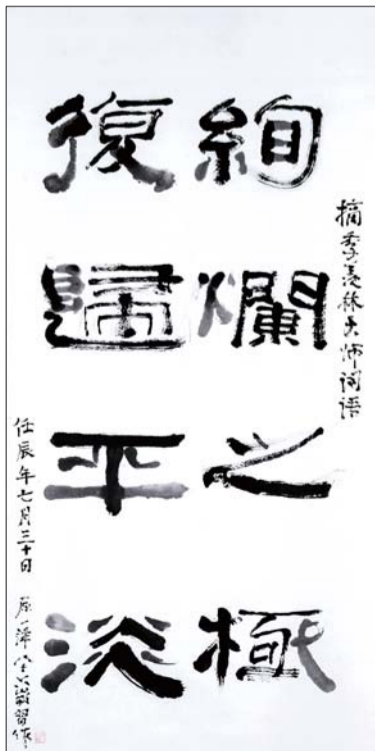 摘季羡林大师词语
絢爛之極
復歸平淡
任辰年七月三十日
習作